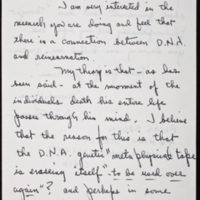 I am very interested in the
research you are doing and feel that
there is a connection between D.N.A.
and reincarnation.
My theory is that - as has
been said - at the moment of the
individuals death his entire life
passes through his mind. I believe
that the reason for this is that
the D.N.A. genetic "metaphysical tape
is erasing itself" to be used over
again"? and perhaps in some